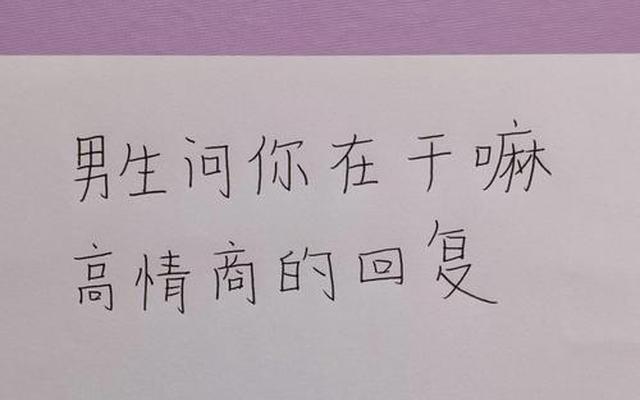 男生问你在干嘛
高情商的回复